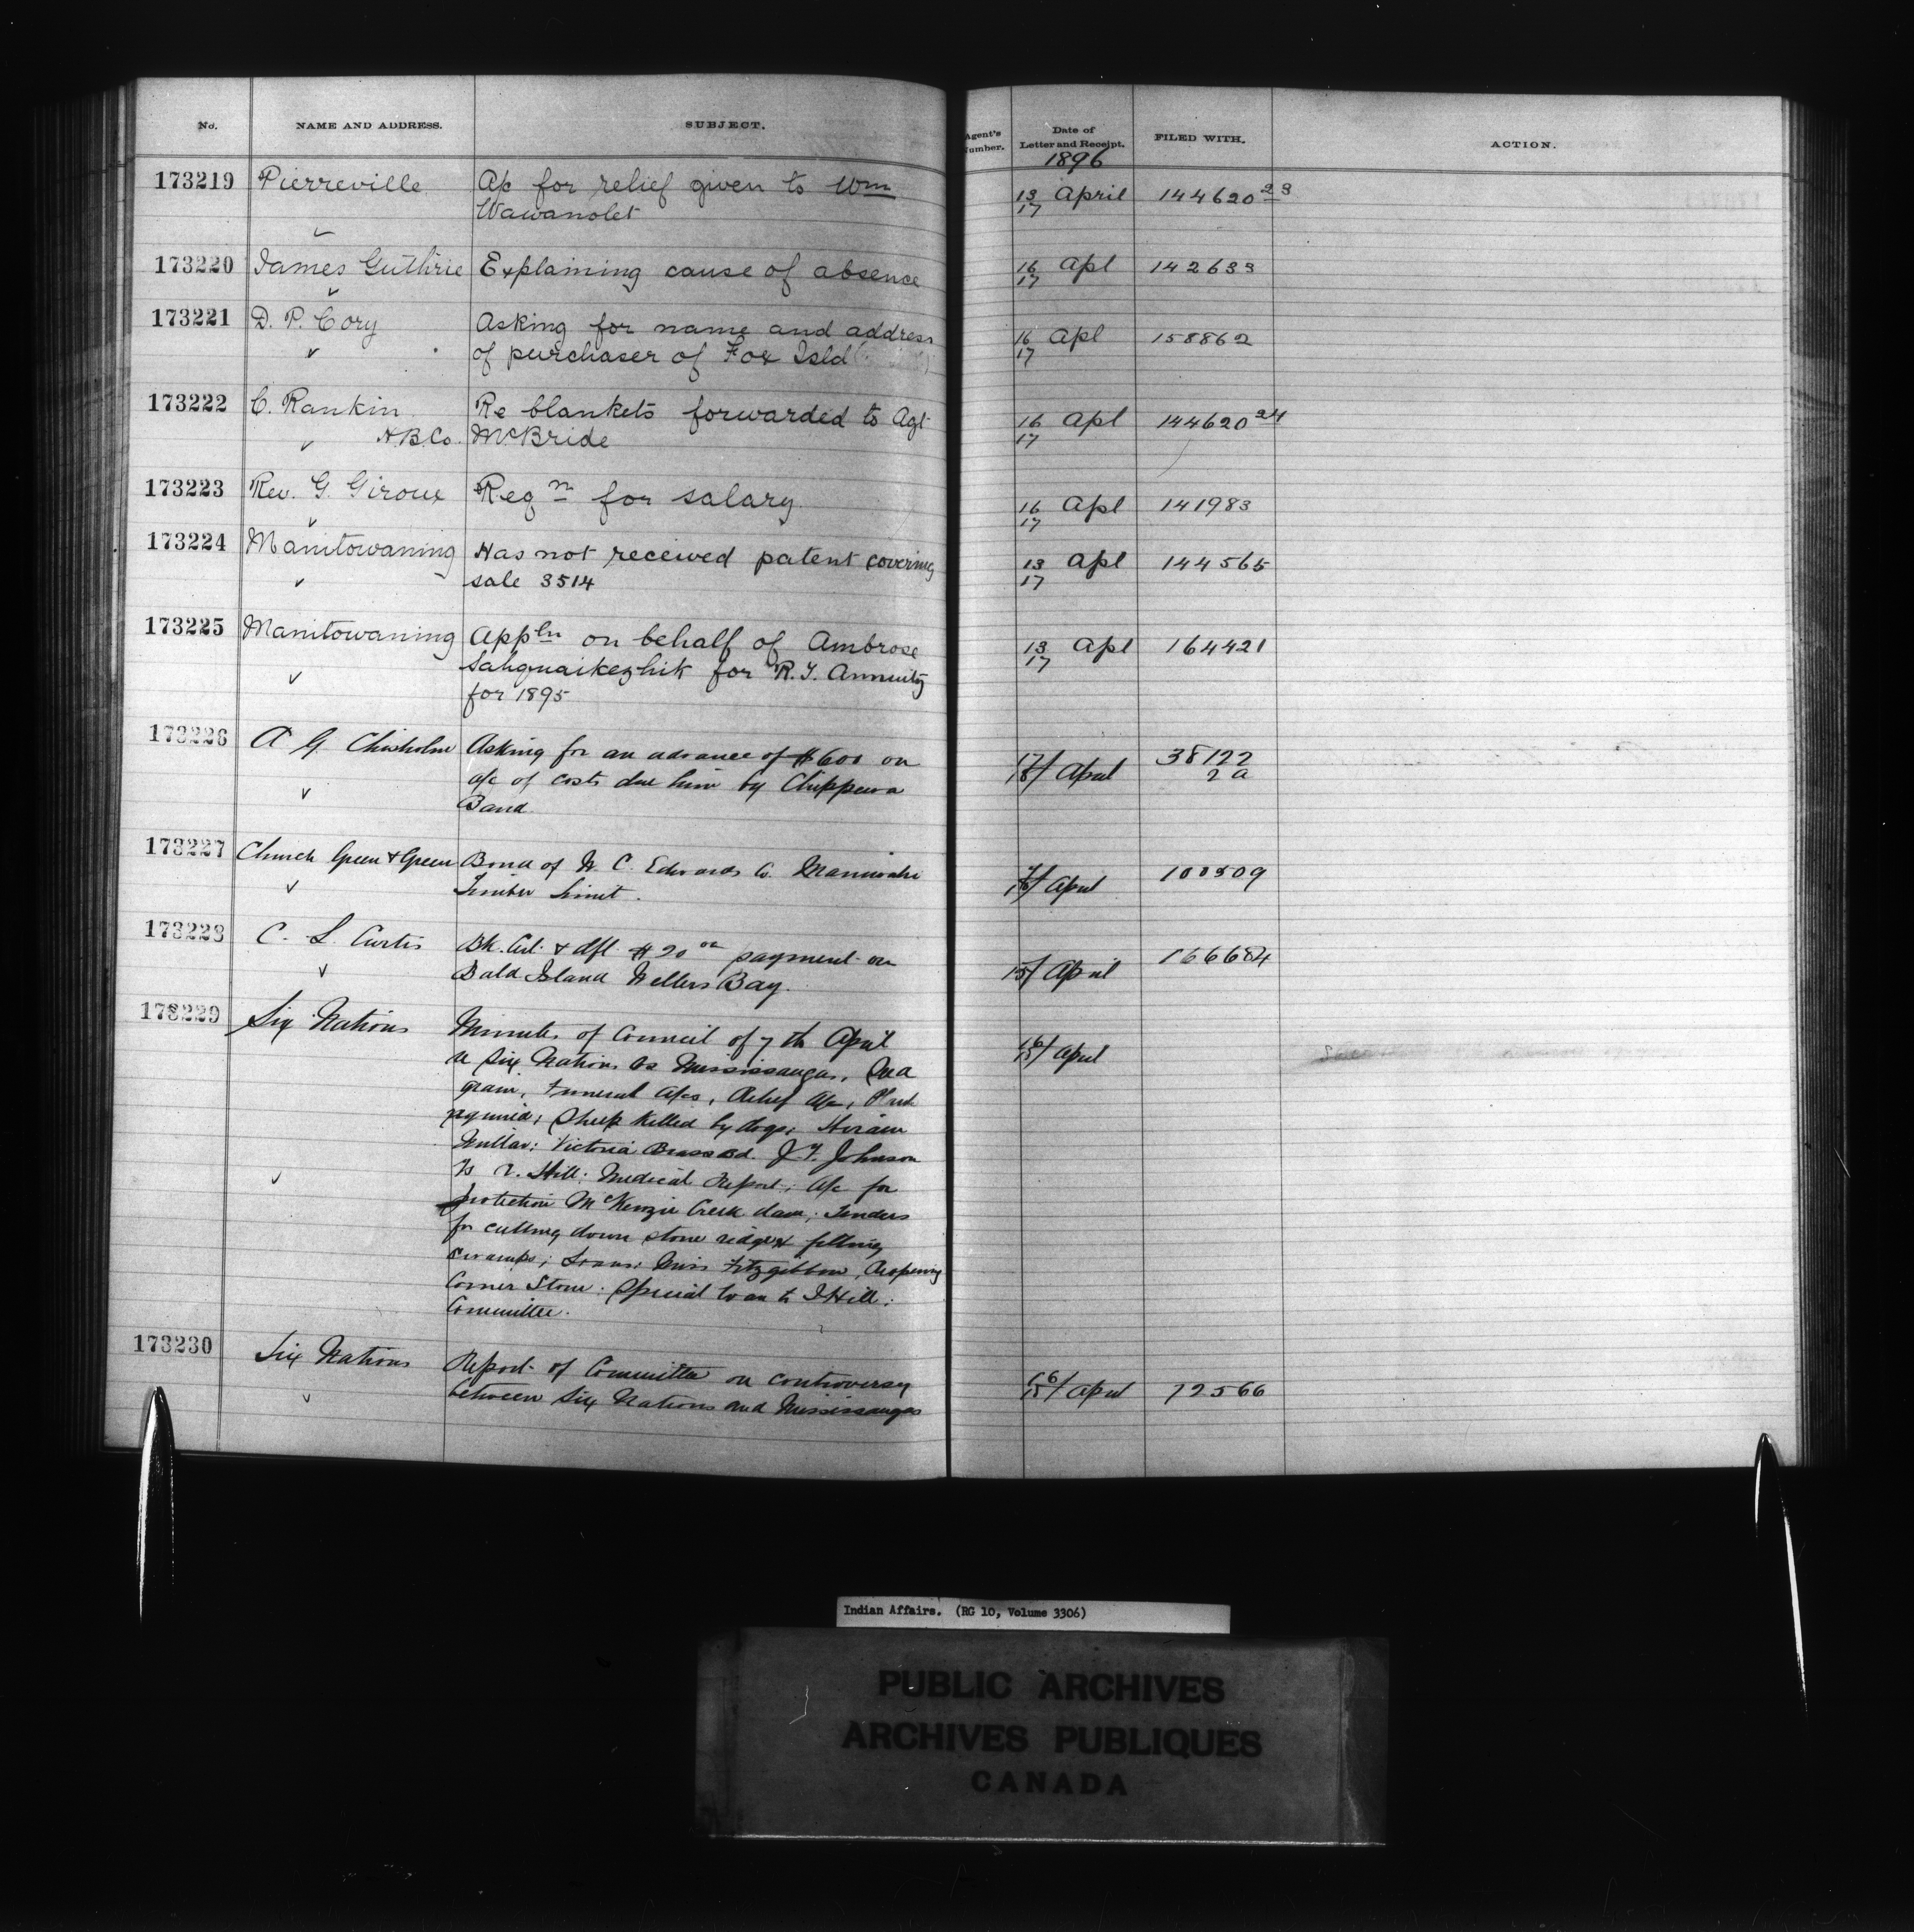 No. NAME AND ADDRESS. SUBJECT. Agent's Number. Date of Letter and Receipt. FILED WITH. ACTION.
1896
173219 Pierreville A/c for relief given to Wm 13/17 April 144620 23
Wawanolet
173220 James Guthrie Explaining cause of absence 16/17 Apl 142633
173221 D. P. Cory Asking for name and address 16/17 Apl 158862
of purchaser of Fox Isld
173222 C. Rankin Re blankets forwarded to Agt 16/17 Apl 144620 24
H.B.Co. McBride
173223 Rev. G. Giroux Reqn for salary 16/17 Apl 141983
173224 Manitowaning Has not received patent covering 13/17 Apl 144565
sale 3514
173225 Manitowaning Appln on behalf of Ambrose 13/17 Apl 164421
Sahquaikezhik for R.T. Annuity
for 1895
173226 A G. Chisholm Asking for an advance of $600 on 17/18 April 38122
a/c of costs due him by Chippewa 2a
Band.
173227 Church Green & Green Bond of W. C. Edwards Co. Maniwaki April 100509
Timber Limit.
173228 C. L. Curtis Bk. Cert. & dft. $20 00 payment on April 166684
Bald Island Wellers Bay.
173229 Six Nations Minutes of Council of 7th April 16/15/ April
re Six Nations vs Mississaugas,
grain, Funeral A/cs, Relief A/c,
Sheep killed by dogs; Hiram
Victoria Brass Bd. J. T. Johnson
Hill; Medical Report; A/c for
protection McKenzie Creek dam; Tenders
for cutting down stone ridge & filling
swamps; Loans; Miss Fitzgibbon, Reopening
Corner Stone; Special loan to J Hill;
Committee.
173230 Six Nations Report of Committee on controversy 16/15/ April 72566
between Six Nations and Mississaugas
Indian Affairs. (RG 10, Volume 3306)
PUBLIC ARCHIVES
ARCHIVES PUBLIQUES
CANADA